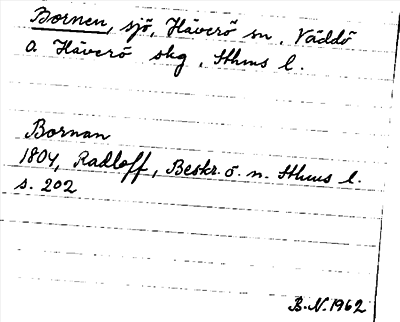 Bornen, sjö, Häverö sn, Väddö
o. Häverö skg, Sthms l.
Bornan
1804, Radloff, Beskr. ö. n. Sthms l.
s. 202
B.N. 1962